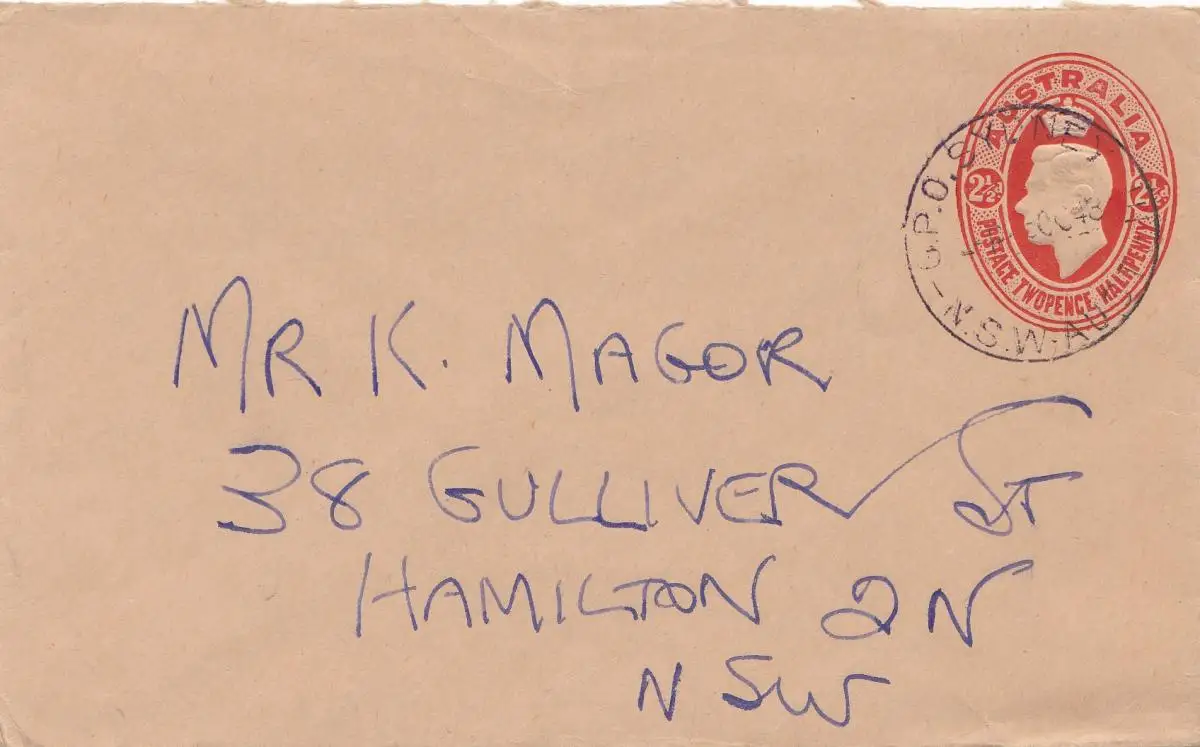 AUSTRALIA
2½d 2½d
POSTAGE TWOPENCE HALFPENNY
G.P.O. SYDNEY
N.S.W-AU
MR K. MAGOR
38 GULLIVER ST
HAMILTON 2N
NSW